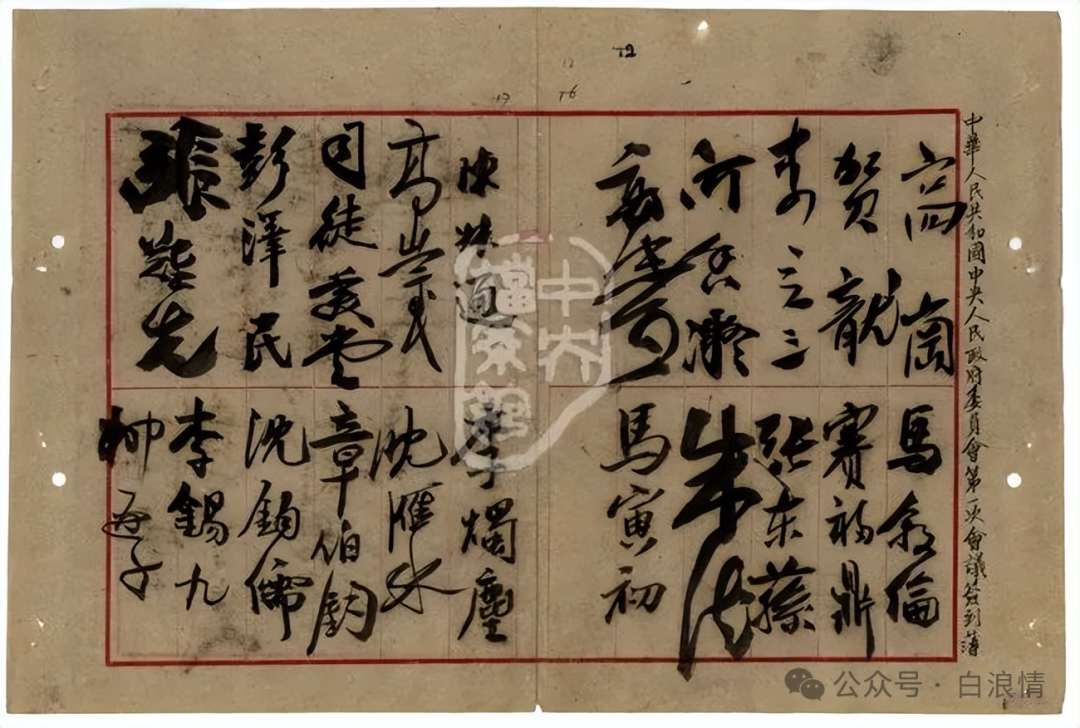 中華人民共和國中央人民政府委員會第一次會議簽到簿
高崗
馬叙倫
賀龍
賽福鼎
李立三
張東蓀
何香凝
朱德
馬寅初
陳叔通
李燭塵
高崇民
沈雁冰
司徒美堂
章伯鈞
彭澤民
沈鈞儒
張難先
李錫九
柳亞子
12
16
17
中央檔案館
公众号 · 白浪情